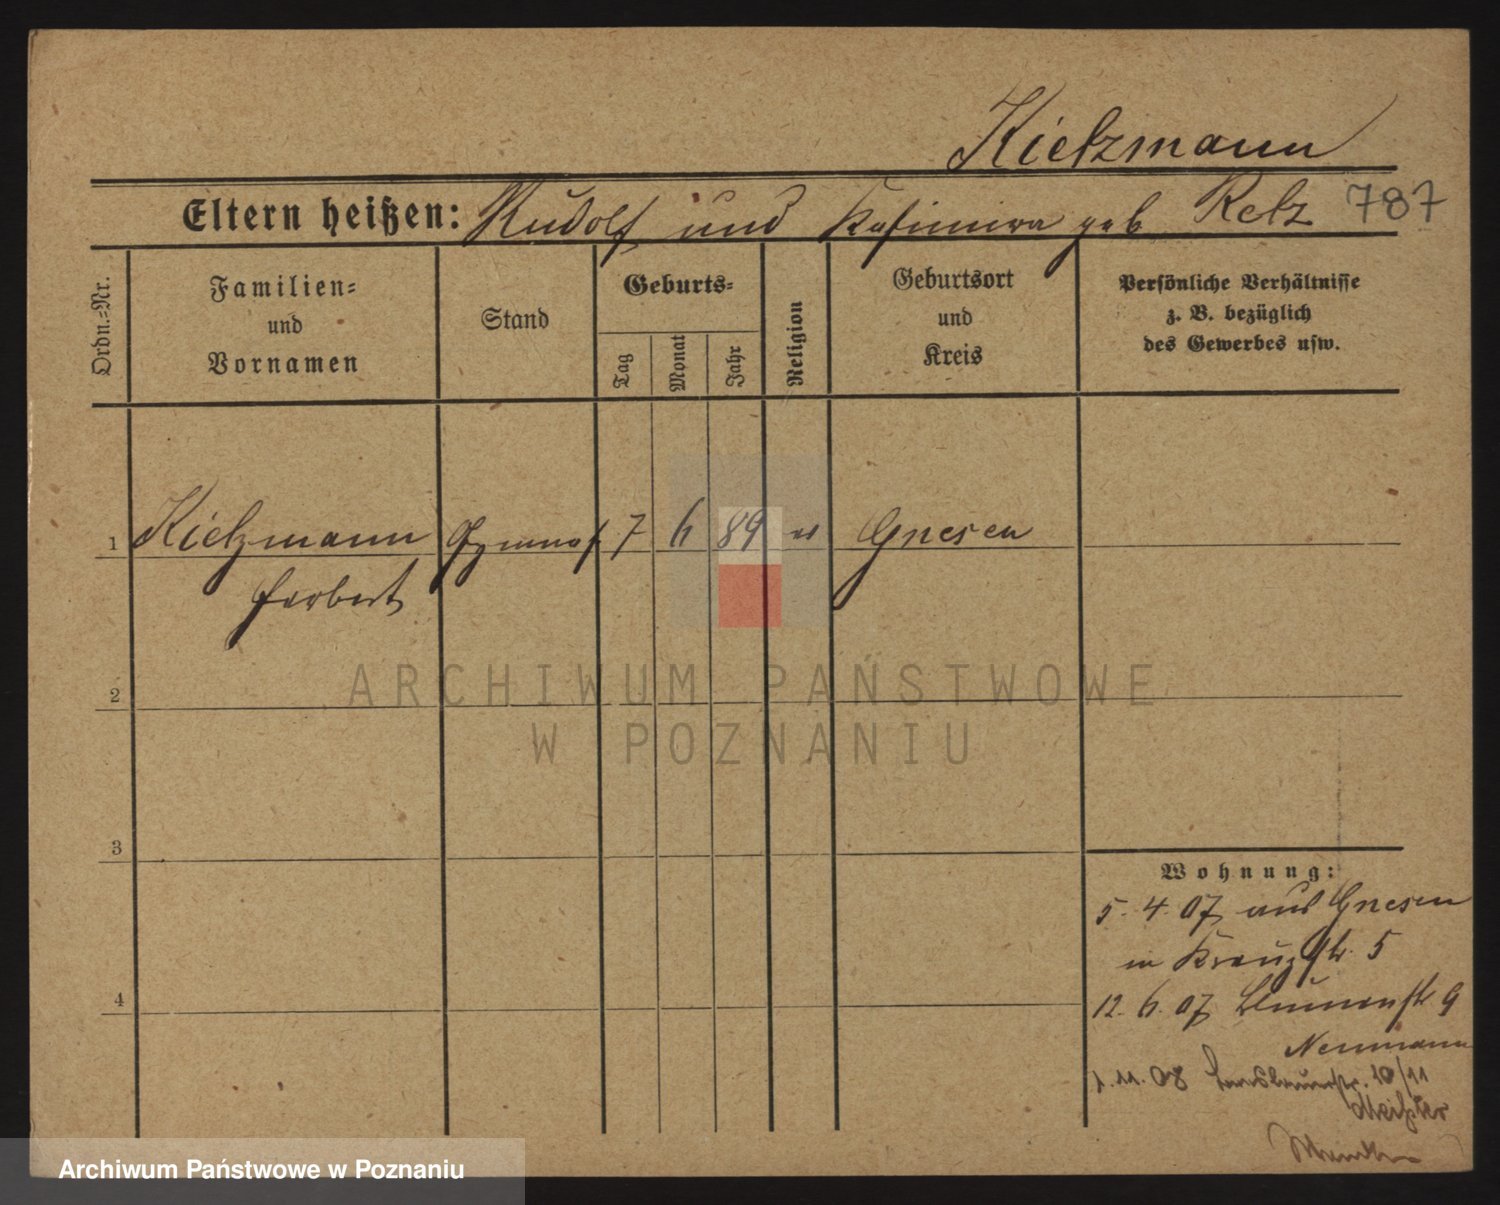 Kietzmann
Eltern heißen: Rudolf und Kasimira geb Retz 787
Ordn.-Nr.
Familien-
und
Vornamen
Stand
Geburts-
Tag
Monat
Jahr
Religion
Geburtsort
und
Kreis
Persönliche Verhältnisse
z. B. bezüglich
des Gewerbes usw.
1 Kietzmann Gymnas 7 6 89 Gnesen
Herbert
2
3
4
Wohnung:
5. 4. 07 aus Gnesen
in Kreuzstr. 5
12. 6. 07 Blumenstr 9
Neumann
1. 11. 08 10/11
Meißter
ARCHIWUM PAŃSTWOWE
W POZNANIU
Archiwum Państwowe w Poznaniu